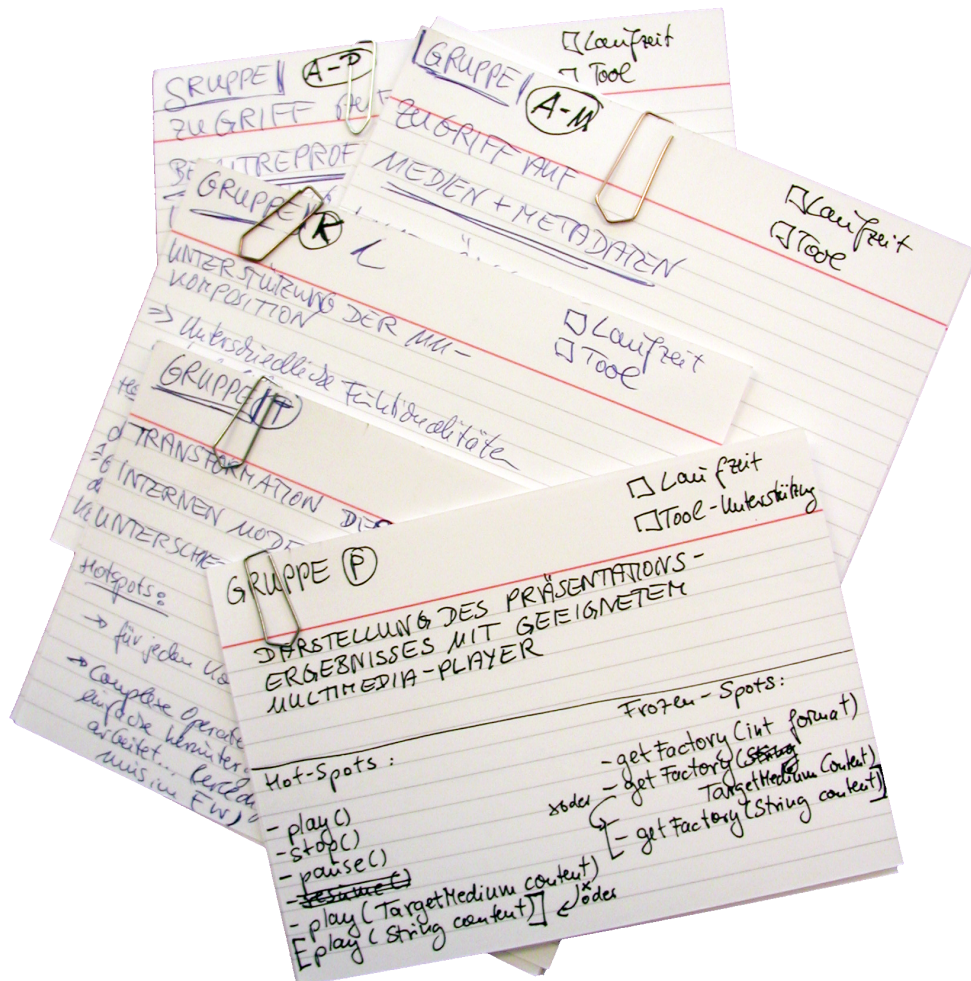 GRUPPE A-P
□ Laufzeit
□ Tool
ZUGRIFF
GRUPPE A-M
ZUGRIFF AUF
MEDIEN + METADATEN
□ Laufzeit
□ Tool
GRUPPE K
UNTERSTÜTZUNG DER MM-
KOMPOSITION
⇒ Unterschiedliche Funktionalitäten
□ Laufzeit
□ Tool
GRUPPE T
TRANSFORMATION DES
INTERNEN MODE
UNTERSCHIE
Hotspots:
→ für jeden
→ Complexe Operato
einfache
arbeitet...
muss im FW)
GRUPPE P
□ Laufzeit
□ Tool-Unterstützung
DARSTELLUNG DES PRÄSENTATIONS-
ERGEBNISSES MIT GEEIGNETEM
MULTIMEDIA-PLAYER
Hot-Spots:
- play()
- stop()
- pause()
- resume()
- play(TargetMedium content)
[play(String content)] *oder
Frozen-Spots:
- getFactory(int format)
- getFactory(String
TargetMedium Content)
*oder
[- getFactory(String content)]